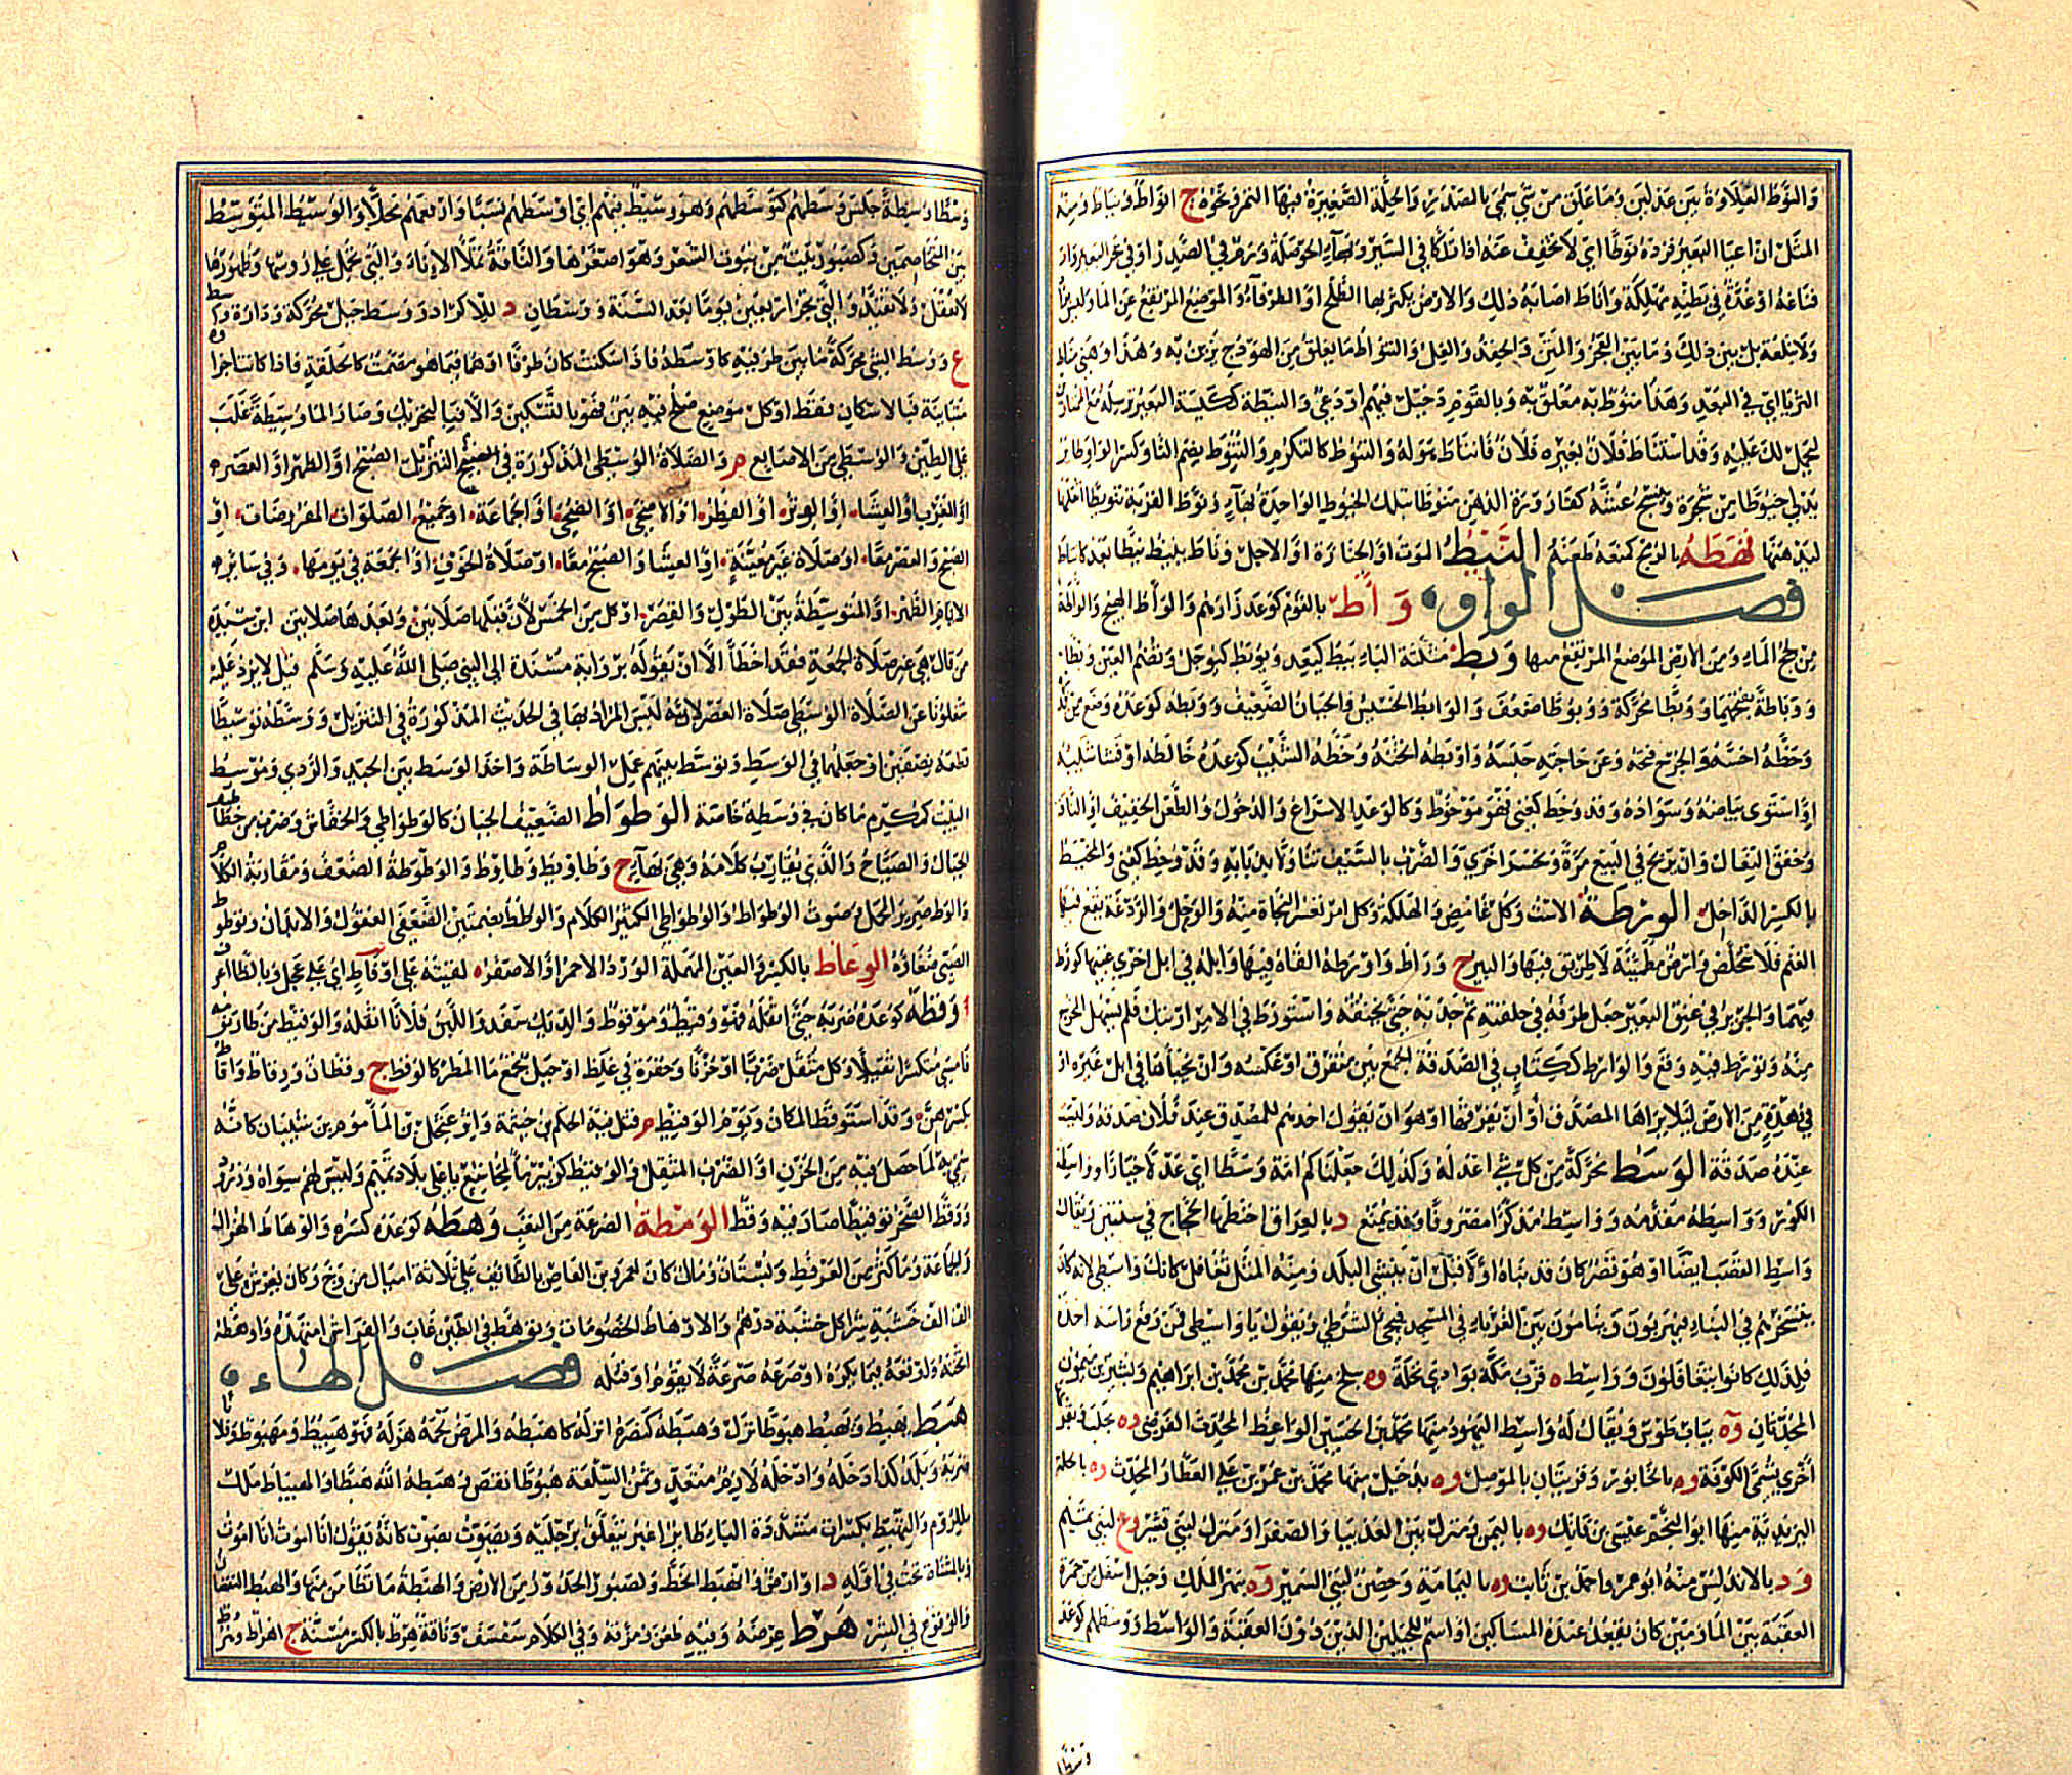 والنوط العلاوة بين عدلين وما علق من شيء سمي بالمصدر والجلة الصغيرة فيها التمر ونحوه ج انواط ونياط ومنه
المثل ان اعيا البعير فزده نوطا اي لا تخفف عنه اذا تلكا في السير وبهاء الحوصلة وورم في الصدر او في نحر البعير وار
فاغه او غدة في بطنه مهلكة واناط اصابه ذلك والارض يكثر بها الطلح او الطرفاء والموضع المرتفع عن الماء
بل بين ذلك وما بين العجز والمتن والحقد والغل والتنواط ما يعلق من الهودج يزين به وهذا مني مناط
الثريا اي في البعد وهذا منوط به معلق به وبالقوم دخيل فيهم او دعي والنيطة ككيسة البعير ترسله مع الممتارين
ليحمل لك عليه وقد استناط فلان بعيره فلان فانتاط بموله والتنوط كالتكرم والتنوط بضم التا وكسر الواو طائر
يدلي خيوطا من شجرة وينسج عشه كقارورة الدهن منوطا بتلك الخيوط الواحدة بهاء ونوط القربة تنويطا اثقلها
ليدهنها نهطه بالرمح كمنعه طعنه النيط الموت او الجنازة او الاجل وناط ينيط نيطا بعد كانتاط
فصل الواو وأط بالقوم كوعد زارهم والوأط الهيج والوأطة
من لجج الماء ومن الارض الموضع المرتفع منها وبط مثلثة الباء يبط كيعد ويوبط كيوجل وتضم العين وبطا
ووباطة بفتحهما ووبطا محركة ووبوطا ضعف والوابط الخسيس والجبان الضعيف ووبطه كوعده وضع من قدره
وحظه اخسه والجرح فتحه وعن حاجته حبسه واوبطه اثخنه وخطه الشيب كوعده خالطه او فشا شيبه
او استوى بياضه وسواده وقد وخط كعني فهو موخوط وكالوعد الاسراع والدخول والطعن الخفيف او النافذ
وخفق النعال وان يربح في البيع مرة ويخسر اخرى والضرب بالسيف تناولا من ذبابه وقد وخط كعني والمخيط
بالكسر الداخل الورطة الاست وكل غامض والهلكة وكل امر تعسر النجاة منه والوحل والردغة يقع فيها
الغنم فلا تتخلص وارض مطمئنة لا طريق فيها والبير ج وراط واورطه القاه فيها وابله في ابل اخرى غيبها كورط
فيهما والجرير في عنق البعير جعل طرفه في حلقته ثم جذبه حتى يخنقه واستورط في الامر ارتبك فلم يسهل المخرج
منه وتورط فيه وقع والوراط ككتاب في الصدقة الجمع بين متفرق او عكسه وان يخباها في ابل غيره او
في وهدة من الارض ليلا يراها المصدق او ان يفرقها او هو ان يقول احدهم للمصدق عند فلان صدقة وليست
عنده صدقة الوسط محركة من كل شيء اعدله وكذلك جعلناكم امة وسطا اي عدلا خيارا وواسطة
الكور وواسطه مقدمه وواسط مذكرا مصروفا وقد يمنع د بالعراق اختطها الحجاج في سنتين ويقال
واسط القصب ايضا او هو قصر كان قد بناه اولا قبل ان ينشى البلد ومنه المثل تغافل كانك واسطي لانه كان
يتسخرهم في البناء فيهربون وينامون بين الغرباء في المسجد فيجيء الشرطي ويقول يا واسطي فمن رفع راسه اخذه
فلذلك كانوا يتغافلون وواسط ه قرب مكة بوادي نخلة وة ببلخ منها محمد بن محمد بن ابراهيم وبشير بن ميمون
المحدثان وة بباب طوس ويقال له واسط اليهود منها محمد بن الحسين الواعظ المحدث الفرضي وة بحلب وبقربها
اخرى تسمى الكوفة وة بالخابور وقريتان بالموصل وة بدجيل منها محمد بن عمر بن علي العطار المحدث وة بالحلة
المزيدية منها ابو النجم عيسى بن فاتك وة باليمن ومنزل بين العذيب والصفراء ومنزل لبني قشير وع لبني تميم
ود بالاندلس منه ابو عمر واحمد بن ثابت وة باليمامة وحصن لبني السمير وة بنهر الملك وجبل اسفل من جمرة
العقبة بين المازمين كان يقعد عنده المساكين او اسم للجبلين الذين دون العقبة والواسط ووسطهم كوعد
وسطا
وسطا وسطة جلس وسطهم كتوسطهم وهو وسيط فيهم اي اوسطهم نسبا وارفعهم محلا والوسيط المتوسط
بين المتخاصمين وكصبور بيت من بيوت الشعر وهو اصغرها والناقة تملا الاناء والتي تحمل على رؤسها وظهورها
لا تعقل ولا تقيد والتي تجر اربعين يوما بعد السنة ووسطان د للاكراد ووسط جبل محركة ودارة وسط
ع ووسط الشئ محركة ما بين طرفيه كاوسطه فاذا سكنت كان ظرفا او هما فيما هو مصمت كالحلقة فاذا كانت اجزا
متباينة فبالاسكان فقط او كل موضع صلح فيه بين فهو بالتسكين والا فبالتحريك وصار الماء وسيطة غلب
على الطين والوسطى من الاصابع م والصلاة الوسطى المذكورة في التنزيل الصبح او الظهر او العصر
او المغرب او العشاء او الوتر او الفطر او الاضحى او الضحى او الجماعة او جميع الصلوات المفروضات او
الصبح والعصر معا او صلاة غير معينة او العشاء والصبح معا او صلاة الخوف او الجمعة في يومها وفي سائر
الايام الظهر او المتوسطة بين الطول والقصر او كل من الخمس لان قبلها صلاتين وبعدها صلاتين ابن سيده
من قال هي غير صلاة الجمعة فقد اخطأ الا ان يقوله برواية مسندة الى النبي صلى الله عليه وسلم قيل لا يرد عليه
شغلونا عن الصلاة الوسطى صلاة العصر لانه ليس المراد بها في الحديث المذكورة في التنزيل ووسطه توسيطا
قطعه نصفين او جعله في الوسط وتوسط بينهم عمل الوساطة واخذ الوسط بين الجيد والردي وموسط
البيت كمكرم ما كان في وسطه خاصة الوطواط الضعيف الجبان كالوطواطي والخفاش وضرب من خطاطيف
الجبال والصياح والذي يقارب كلامه وهي بهاء ج وطاويط ووطاوط والوطوطة الضعف ومقاربة الكلام
والوط صرير المحمل وصوت الوطواط والوطواطي الكثير الكلام والوطط بضمتين الضعفى العقول والابدان وتوطوط
الصبي ضغاؤه الوعاط بالكسر والعين المهملة الورد الاحمر او الاصفر لقيته على اوفاط اي على عجل وبالظا اعرف
وقطه كوعده ضربه حتى اثقله فهو وقيط وموقوط والديك سفد واللبن فلانا اثقله والوقيط من طار نومه
فامسى متكسرا ثقيلا وكل مثقل ضربا او حزنا وحفرة في غلظ او جبل يجمع ماء المطر كالوقط ج وقطان ووقاط واقاط
بكسرهن وقد استوقط المكان ويوم الوقيط م قتل فيه الحكم بن خيثمة وابو عنجل بن المأموم بن شيبان كانه
سمي به لما حصل فيه من الحزن او الضرب المثقل والوقيط كزبير ماء لمجاشع باعلى بلاد تميم وليس لهم سواه وزرود
ووقط الصخر توقيطا صار فيه وقط الومطة الصرعة من التعب وهطه كوعده كسره والوهاط الهزال
والجماعة وما كثر من العرفط وبستان ومال كان لعمرو بن العاص بالطائف على ثلاثة اميال من وج وكان يعرش على
الف الف خشبة شرا كل خشبة درهم والاوهاط الخصومات وتوهط في الطين غاب والفراش امتهده واوهطه
اثخنه واوقعه فيما يكره او صرعه صرعة لا يقوم او قتله فصل الهاء
هبط يهبط ويهبط هبوطا نزل وهبطه كنصره انزله كاهبطه والمرض لحمه هزله فهو هبيط ومهبوط وفلانا
ضربه وبلد كذا ادخله وادخله لازم متعد وثمن السلعة هبوطا نقص وهبطه الله هبطا والهيباط ملك
للروم والتهبط بكسرات مشددة الباء طائر اغبر يتعلق برجليه ويصوت بصوت كانه يقول انا اموت انا اموت
وبالمثناة تحت في اوله د او ارض وانهبط انحط وكصبور الحدور من الارض والهبطة ما تطامن منها والهبط النقصان
والوقوع في الشر هرط عرضه وفيه طعن ومزقه وفي الكلام سفسف وناقة هرط بالكسر مسنة ج اهراط وهروط